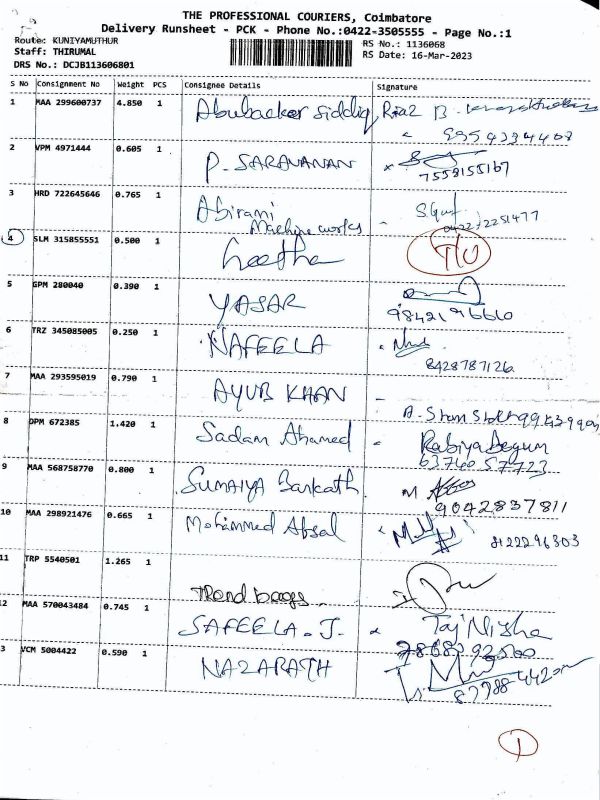 THE PROFESSIONAL COURIERS, Coimbatore
Delivery Runsheet - PCK - Phone No.:0422-3505555 - Page No.:1
Route: KUNIYAMUTHUR
Staff: THIRUMAL
DRS No.: DCJB113606801
RS No.: 1136068
RS Date: 16-Mar-2023
S No Consignment No Weight PCS Consignee Details Signature
1 MAA 299600737 4.850 1 Abubacker Siddiq, Riaz B.
2 VPM 4971444 0.605 1 P. SARAVANAN
7558155167
3 HRD 722645646 0.765 1 Abirami
Machine works
0422/2251477
4 SLM 315855551 0.500 1 Geetha T/O
5 GPM 280040 0.390 1 YASAR
9842196660
6 TRZ 345085005 0.250 1 NAFEELA
8428787126
7 MAA 293595019 0.790 1 AYUB KHAN
8 DPM 672385 1.420 1 Sadam Ahamed Rabiya Begum
63740 57723
9 MAA 568758770 0.800 1 Sumaiya Barkath M
9042837811
10 MAA 298921476 0.665 1 Mohammed Afsal 8122296303
11 TRP 5540501 1.265 1 Trend bags
2 MAA 570043484 0.745 1 SAFEELA.J. Taj Nisha
3 VCM 5004422 0.590 1 NAZARATH
1